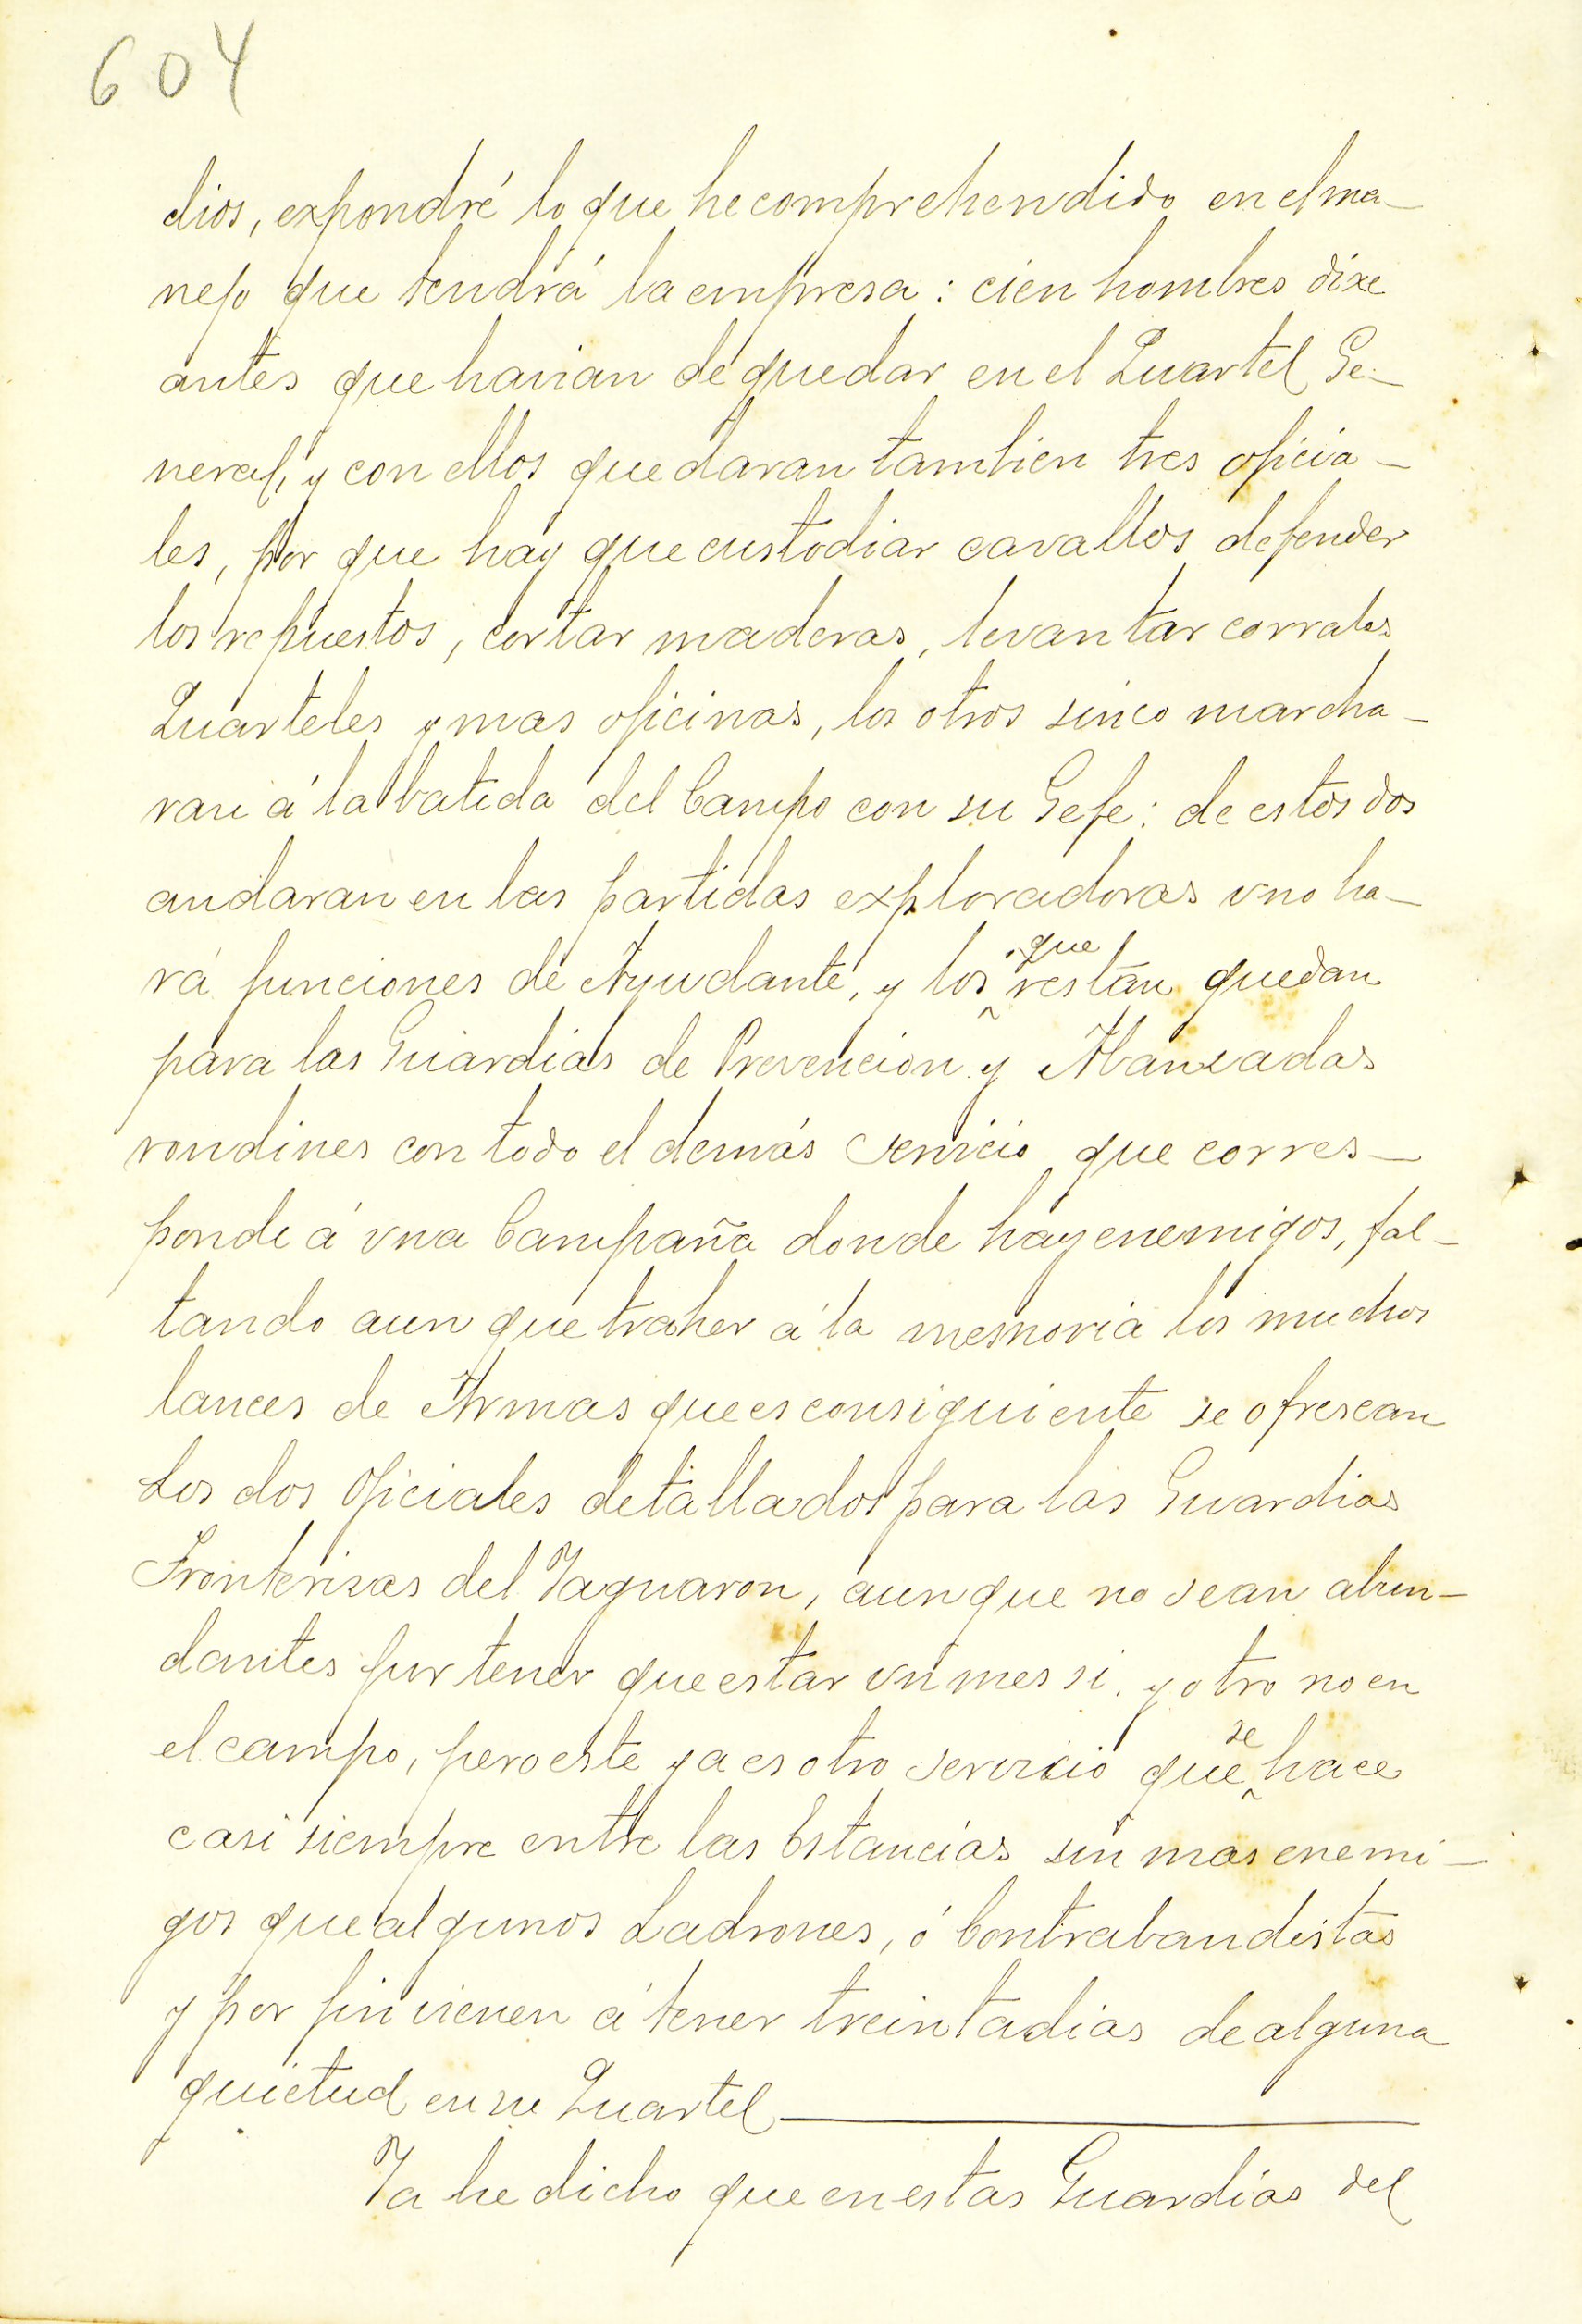 604
dios, expondré lo que he comprehendido en el ma-
nejo que tendrá la empresa: cien hombres dixe
antes que havian de quedar en el Quartel Ge-
neral, y con ellos quedaran tambien tres oficia-
les, por que hay que custodiar cavallos defender
los repuestos, cortar maderas, levantar corrales
Quarteles y mas oficinas, los otros sinco marcha-
ran á la batida del Campo con su Gefe: de estos dos
andaran en las partidas exploradoras uno ha-
rá funciones de Ayudante, y los que restan quedan
para las Guardias de Prevencion y Abanzadas
rondines con todo el demás servicio que corres-
ponde á vna Campaña donde hay enemigos, fal-
tando aun que traher á la memoria los muchos
lances de Armas que es consiguiente se ofrescan
Los dos Oficiales detallados para las Guardias
Fronterisas del Yaguaron, aunque no sean abun-
dantes por tener que estar vn mes si. y otro no en
el campo, pero este ya es otro servicio que se hace
casi siempre entre las Estancias sin mas enemi-
gos que algunos Ladrones, ó Contrabandistas
y por fin vienen á tener treinta dias de alguna
quietud en su Quartel
Ya he dicho que en estas Guardias del